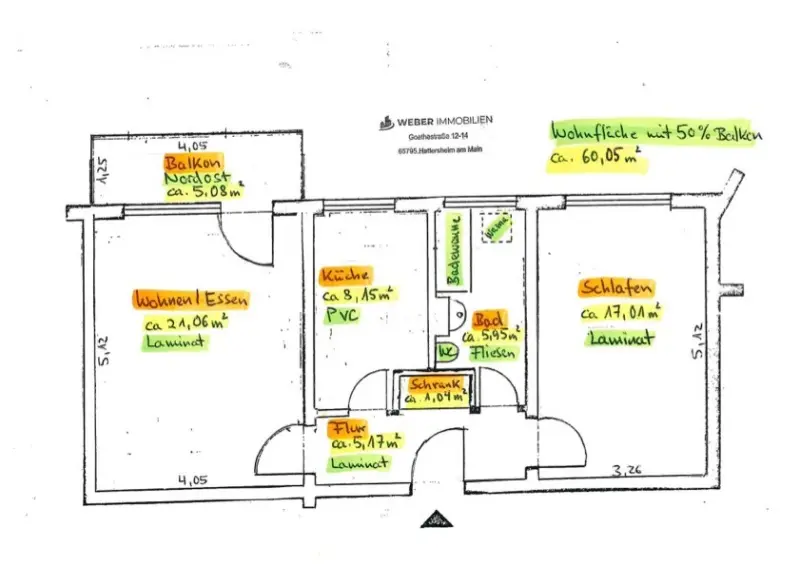 WEBER IMMOBILIEN
Goethestraße 12-14
65795 Hattersheim am Main
Wohnfläche mit 50% Balkon
ca. 60,05 m²
4,05
1,25
Balkon
Nordost
ca. 5,08 m²
Wohnen/Essen
ca 21,06 m²
Laminat
5,12
4,05
Küche
ca 8,15 m²
PVC
Badewanne
WC
Bad
ca. 5,95 m²
Fliesen
Schrank
ca. 1,04 m²
Flur
ca. 5,17 m²
Laminat
Schlafen
ca. 17,01 m²
Laminat
5,12
3,26